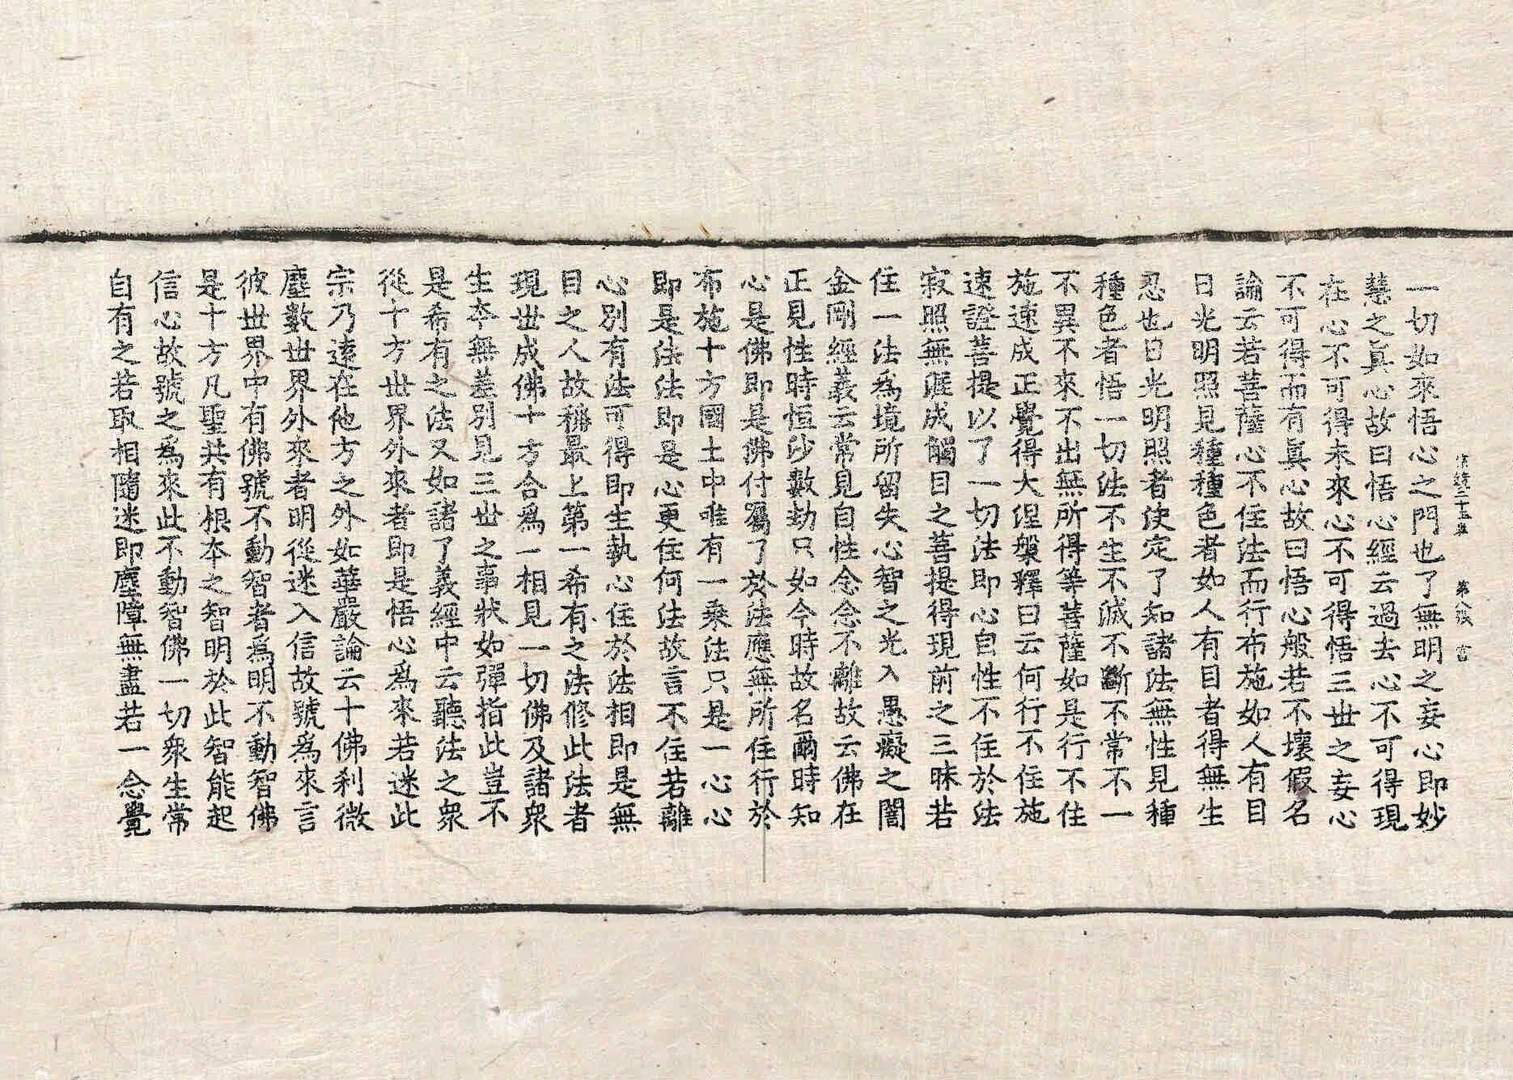 宗鏡二十五卷 第八張 言
一切如來悟心之門也了無明之妄心即妙
慧之眞心故曰悟心經云過去心不可得現
在心不可得未來心不可得悟三世之妄心
不可得而有眞心故曰悟心般若不壞假名
論云若菩薩心不住法而行布施如人有目
日光明照見種種色者如人有目者得無生
忍也日光明照者決定了知諸法無性見種
種色者悟一切法不生不滅不斷不常不一
不異不來不出無所得等菩薩如是行不住
施速成正覺得大涅槃釋曰云何行不住施
速證菩提以了一切法即心自性不住於法
寂照無涯成觸目之菩提得現前之三昧若
住一法爲境所留失心智之光入愚癡之闇
金剛經義云常見自性念念不離故云佛在
正見性時恒沙數劫只如今時故名爾時知
心是佛即是佛付屬了於法應無所住行於
布施十方國土中唯有一乘法只是一心心
即是法法即是心更住何法故言不住若離
心別有法可得即生執心住於法相即是無
目之人故稱最上第一希有之法修此法者
現世成佛十方合爲一相見一切佛及諸衆
生本無差別見三世之事狀如彈指此豈不
是希有之法又如諸了義經中云聽法之衆
從十方世界外來者即是悟心爲來若迷此
宗乃遠在他方之外如華嚴論云十佛刹微
塵數世界外來者明從迷入信故號爲來言
彼世界中有佛號不動智者爲明不動智佛
是十方凡聖共有根本之智明於此智能起
信心故號之爲來此不動智佛一切衆生常
自有之若取相隨迷即塵障無盡若一念覺